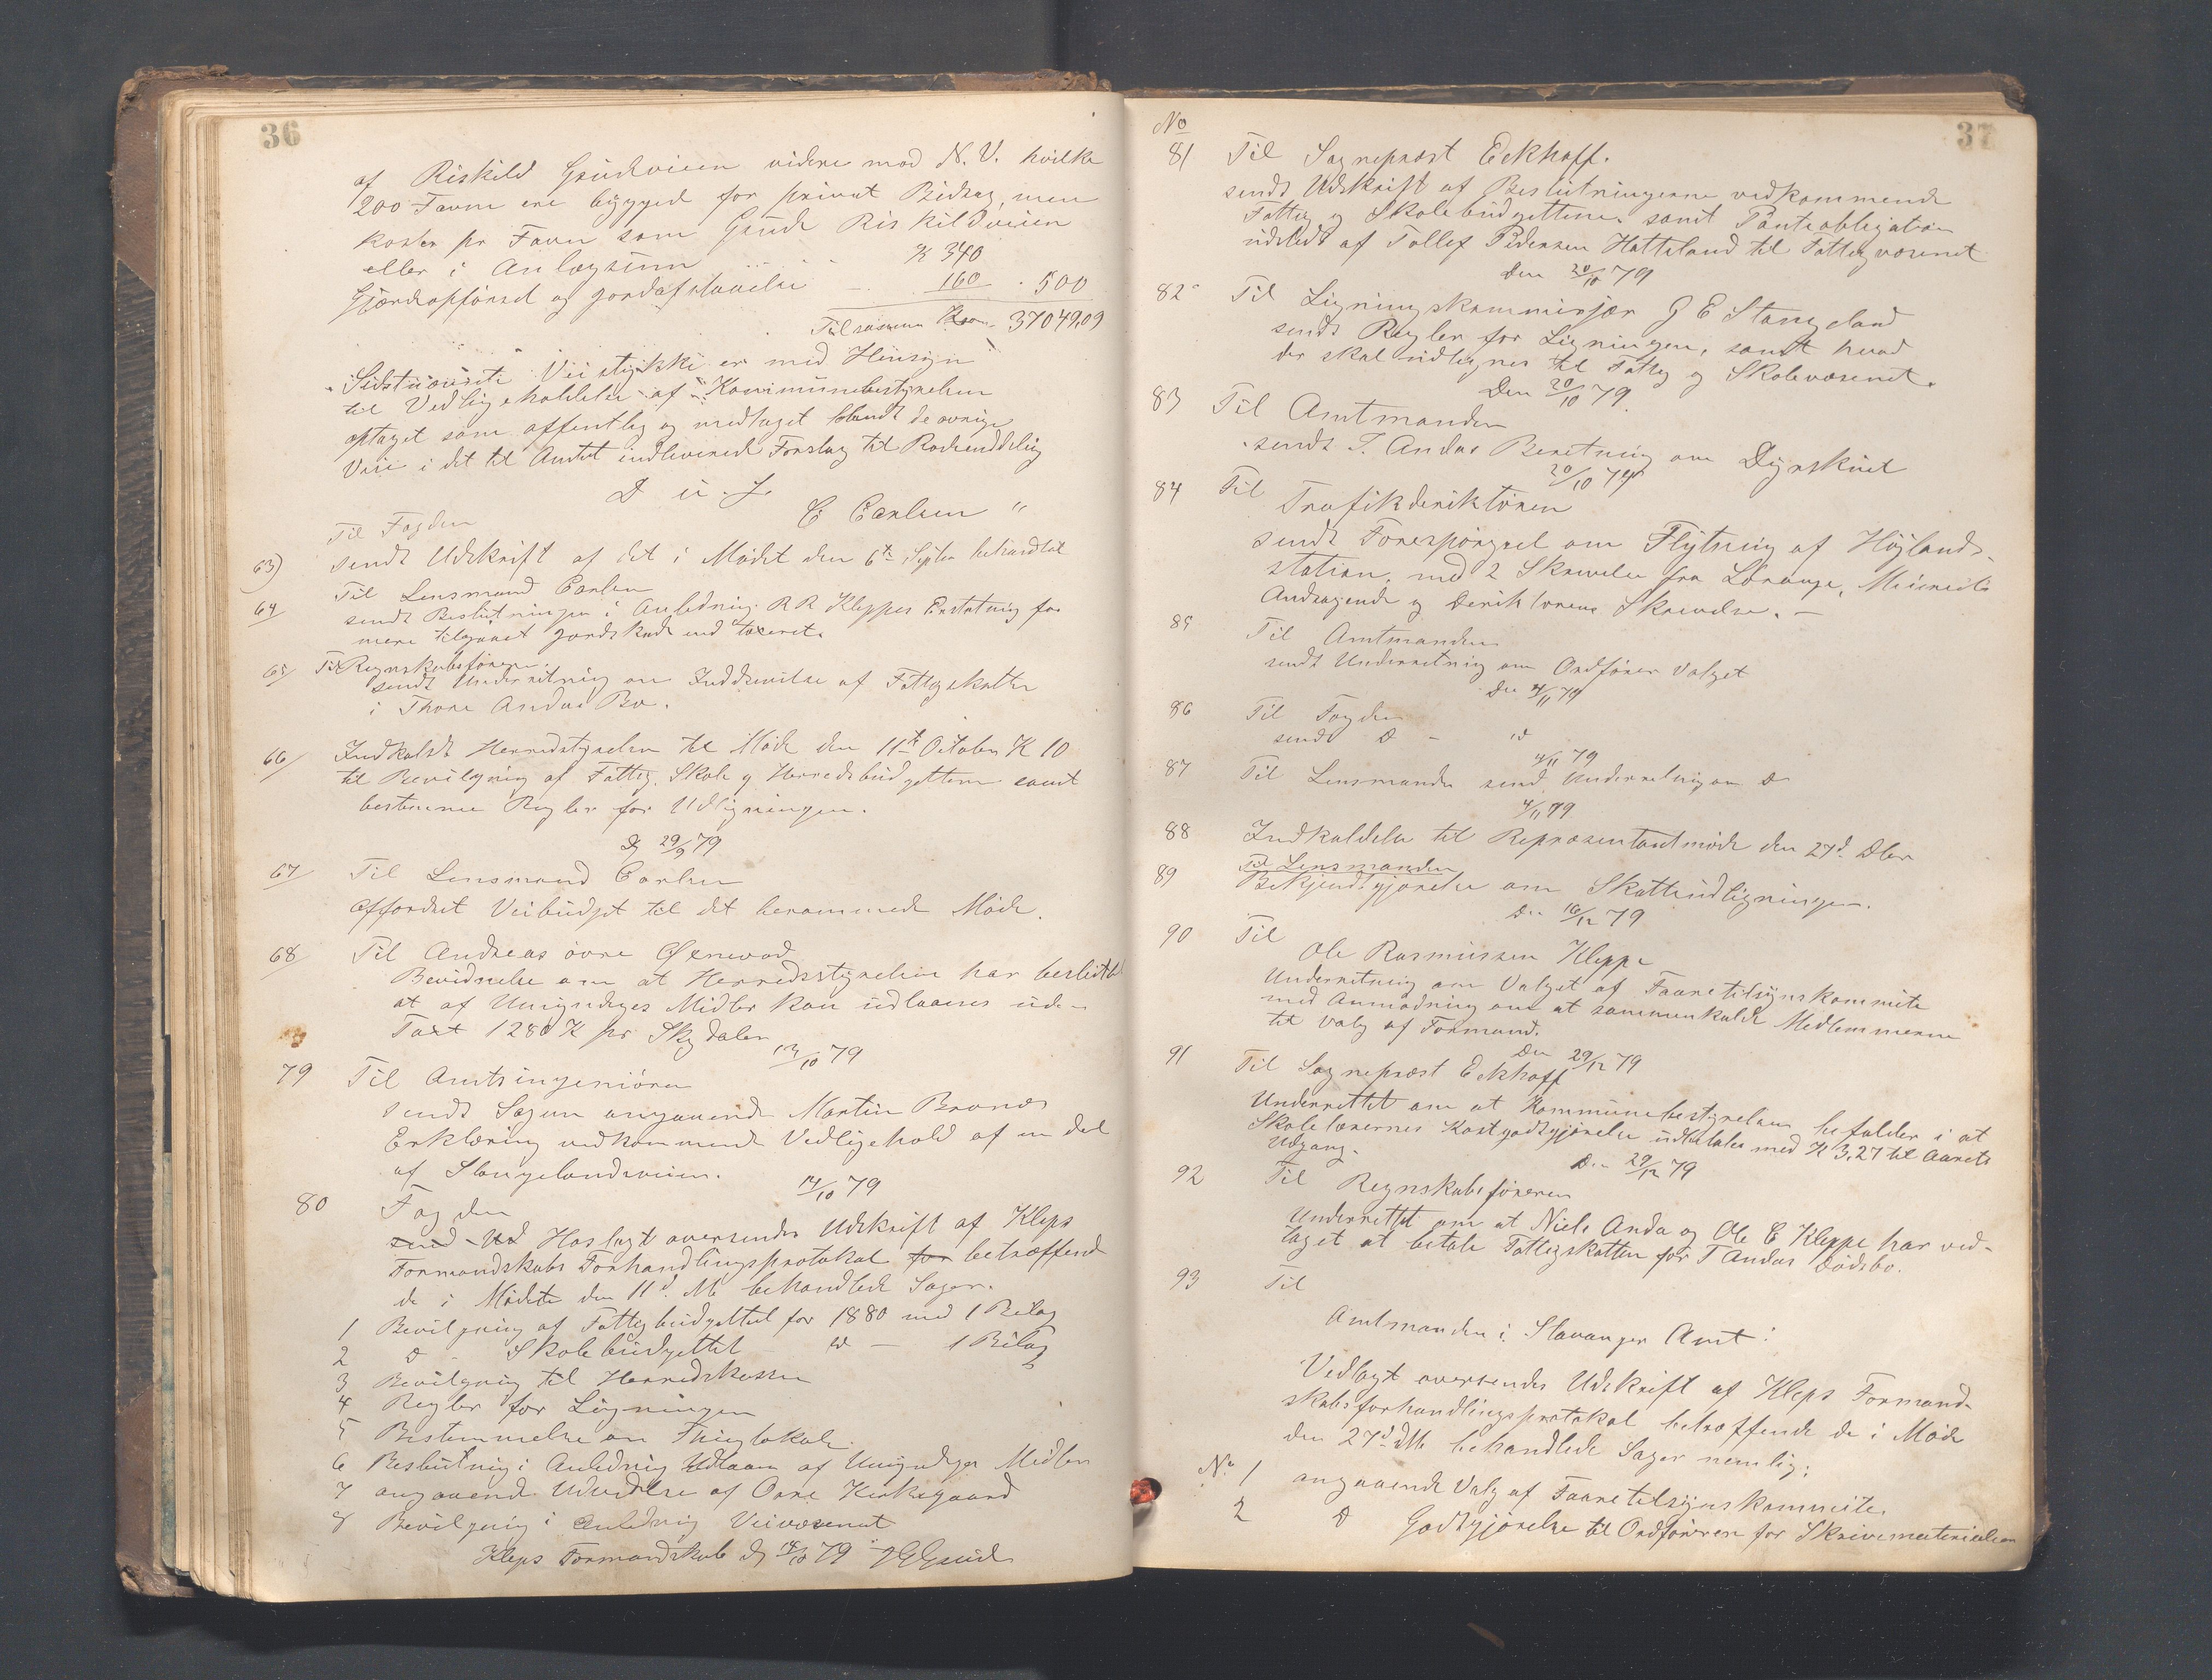 36
af Riskild Grudeveien videre mod N. V. hvilke
200 Favne ere bygged for privat Bidrag, men
koster pr Favn som Grude Riskildveien
eller i Anlægsum K 340
Gjærdeopførsel og jordafstaaelse 160 . 500
Tilsammen Kron 37049,09
Sidstnævnte Veistykke er med Hensyn
til Vedligeholdelse af Kommunebestyrelsen
optaget som offentlig og medtaget blandt de øvrige
Veie i det til Amtet indleverede Forslag til Rodeinddeling
D. u. S.
C Carlsen "
Til Fogden
63) sendt Udskrift af det i Mødet den 6te Septbr behandlet
64 Til Lensmand Carlsen
sendt Beslutningen i Anledning R R Kleppes Erstatning for
mere tilgaaet Jordskade end taxeret.
65 Til Regnskabsføreren.
sendt Underretning om Inddrivelse af Fattigskatten
i Thore Andas Bo.
66 Indkaldt Herredstyrelsen til Møde den 11te October K 10
til Bevilgning af Fattig, Skole og Herredsbudgettene samt
bestemme Regler for Udligningen.
D 29/9 79
67 Til Lensmand Carlsen
Affordret Veibudget til det berammede Møde.
68 Til Andreas øvre Øxnevad
Bevidnelse om at Herredsstyrelsen har besluttet
at af Umyndiges Midler kan udlaanes uden
Taxt 1280 K pr Skydaler
13/10 79
79 Til Amtsingeniøren
sendt Sagen angaaende Martin Braanes
Erklæring vedkommende Vedligehold af en del
af Slangelandsveien.
14/10 79
80 Fogden
send Ved Hoslagt oversendes Udskrift af Kleps
Formandskabs Forhandlingsprotokol for betræffende
de i Mødete den 11d. M. behandlede Sager.
1 Bevilgning af Fattigbudgettet for 1880 med 1 Bilag
2 D Skolebudgettet D — 1 Bilag
3 Bevilgning til Herredskassen
4 Regler for Ligningen
5 Bestemmelse om Thinglokale
6 Beslutning i Anledning Udlaan af Umyndiges Midler
7 angaaende Udvidelse af Orre Kirkegaard
8 Bevilgning i Anledning Veivæsenet
Kleps Formandskab D 14/10 79 J G Grude
37
No
81 Til Sogneprest Eckhoff.
sendt Udskrift af Beslutningerne vedkommende
Fattig og Skolebudgettene samt Panteobligation
udstedt af Tollef Pedersen Hatteland til Fattigvæsenet
Den 20/10 79
82 Til Ligningskommisjær G E Stangeland
sendt Regler for Ligningen, samt hvad
der skal udlignes til Fattig og Skolevæsenet.
Den 20/10 79.
83 Til Amtmanden
sendt T. Andas Beretning om Dyrskuet
20/10 79
84 Til
Trafikdirektøren
sendt Forespørgsel om Flytning af Høylands-
station, med 2 Skrivelser fra Lorange,
Andragende og Direktørens Skrivelse. —
85 Til Amtmanden
sendt Underretning om Ordfører Valget
Den 4/11 79
86 Til Fogden
sendt D — D
4/11 79
87 Til Lensmanden send Underretning om D
4/11 79
88 Indkaldelse til Repræsentantmøde den 27d. Dbr
89 Til Lensmanden
Bekjendtgjørelse om Skatteudligningen.
Den 16/12 79
90 Til
Ole Rasmussen Kleppe
Underretning om Valget af Faaretilsynskommite
med Anmodning om at sammenkalde Medlemmerne
til Valg af Formand.
Den 29/12 79
91 Til Sogneprest Eckhoff
Underrettet om at Kommunebestyrelsen befalder i at
Skolelærernes Kostgodtgjørelse udbetales med K 3,27 til Aarets
Udgang.
Den 29/12 79
92 Til Regnskabsføreren
Underrettet om at Niels Anda og Ole E Kleppe har ved-
taget at betale Fattigskatten for T Andas Dødsbo.
93 Til
Amtmanden i Stavanger Amt!
Vedlagt oversendes Udskrift af Kleps Formand-
skabsforhandlingsprotokol betræffende de i Møde
den 27d. M. behandlede Sager nemlig:
No 1 angaaende Valg af Faaretilsynskommite.
2 D Godtgjørelse til Ordføreren for Skrivematerialier